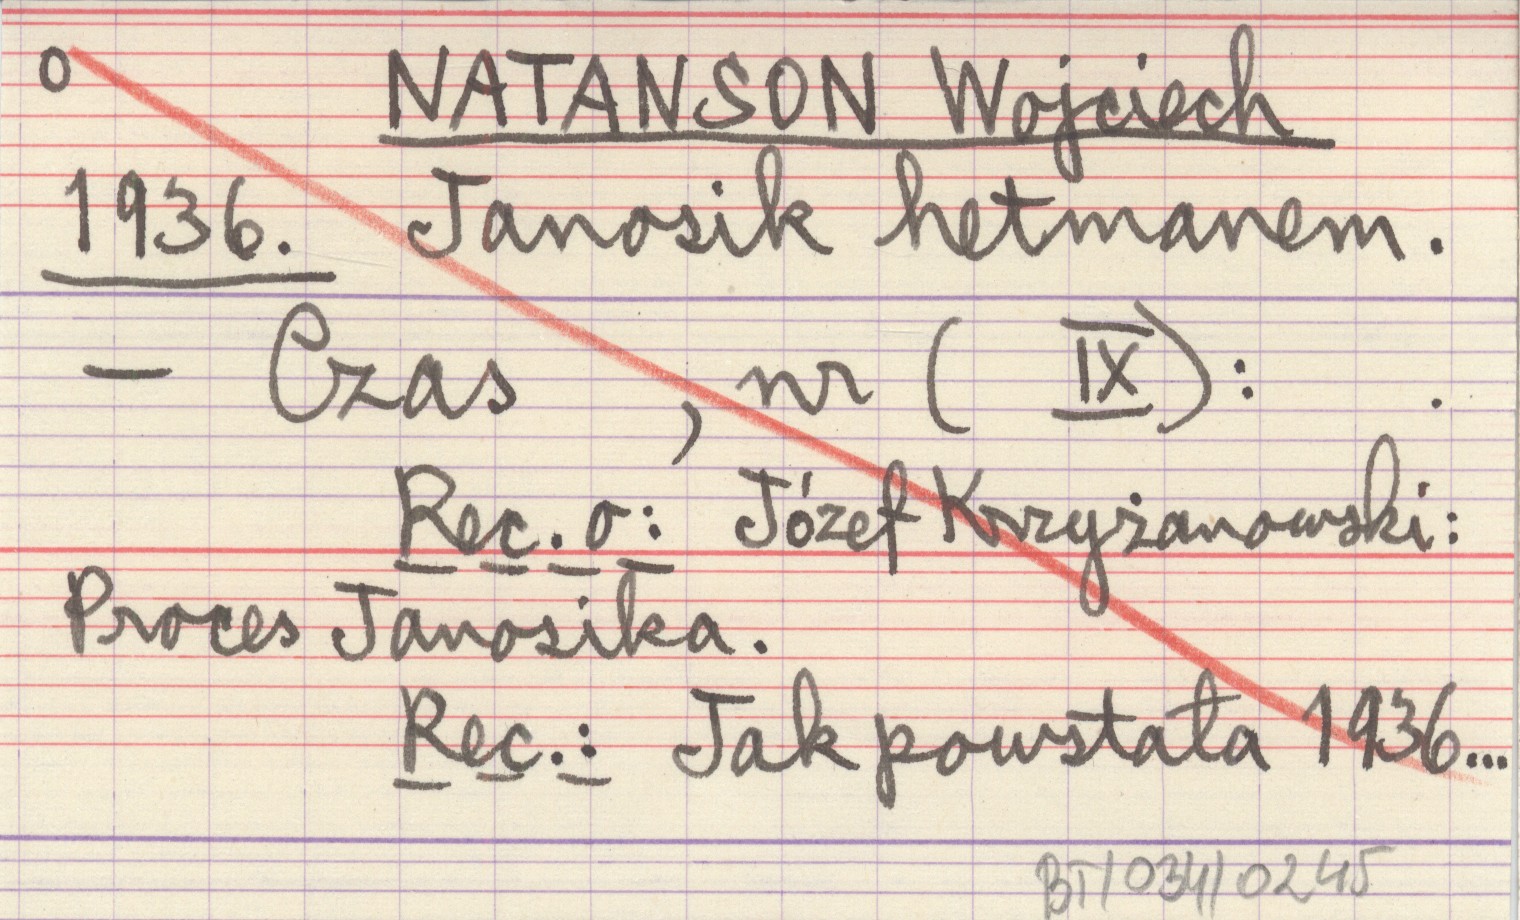 o NATANSON Wojciech
1936. Janosik hetmanem.
— Czas , nr ( IX): .
Rec. o: Józef Krzyżanowski:
Proces Janosika.
Rec.: Jak powstała 1936...
BT/034/0245